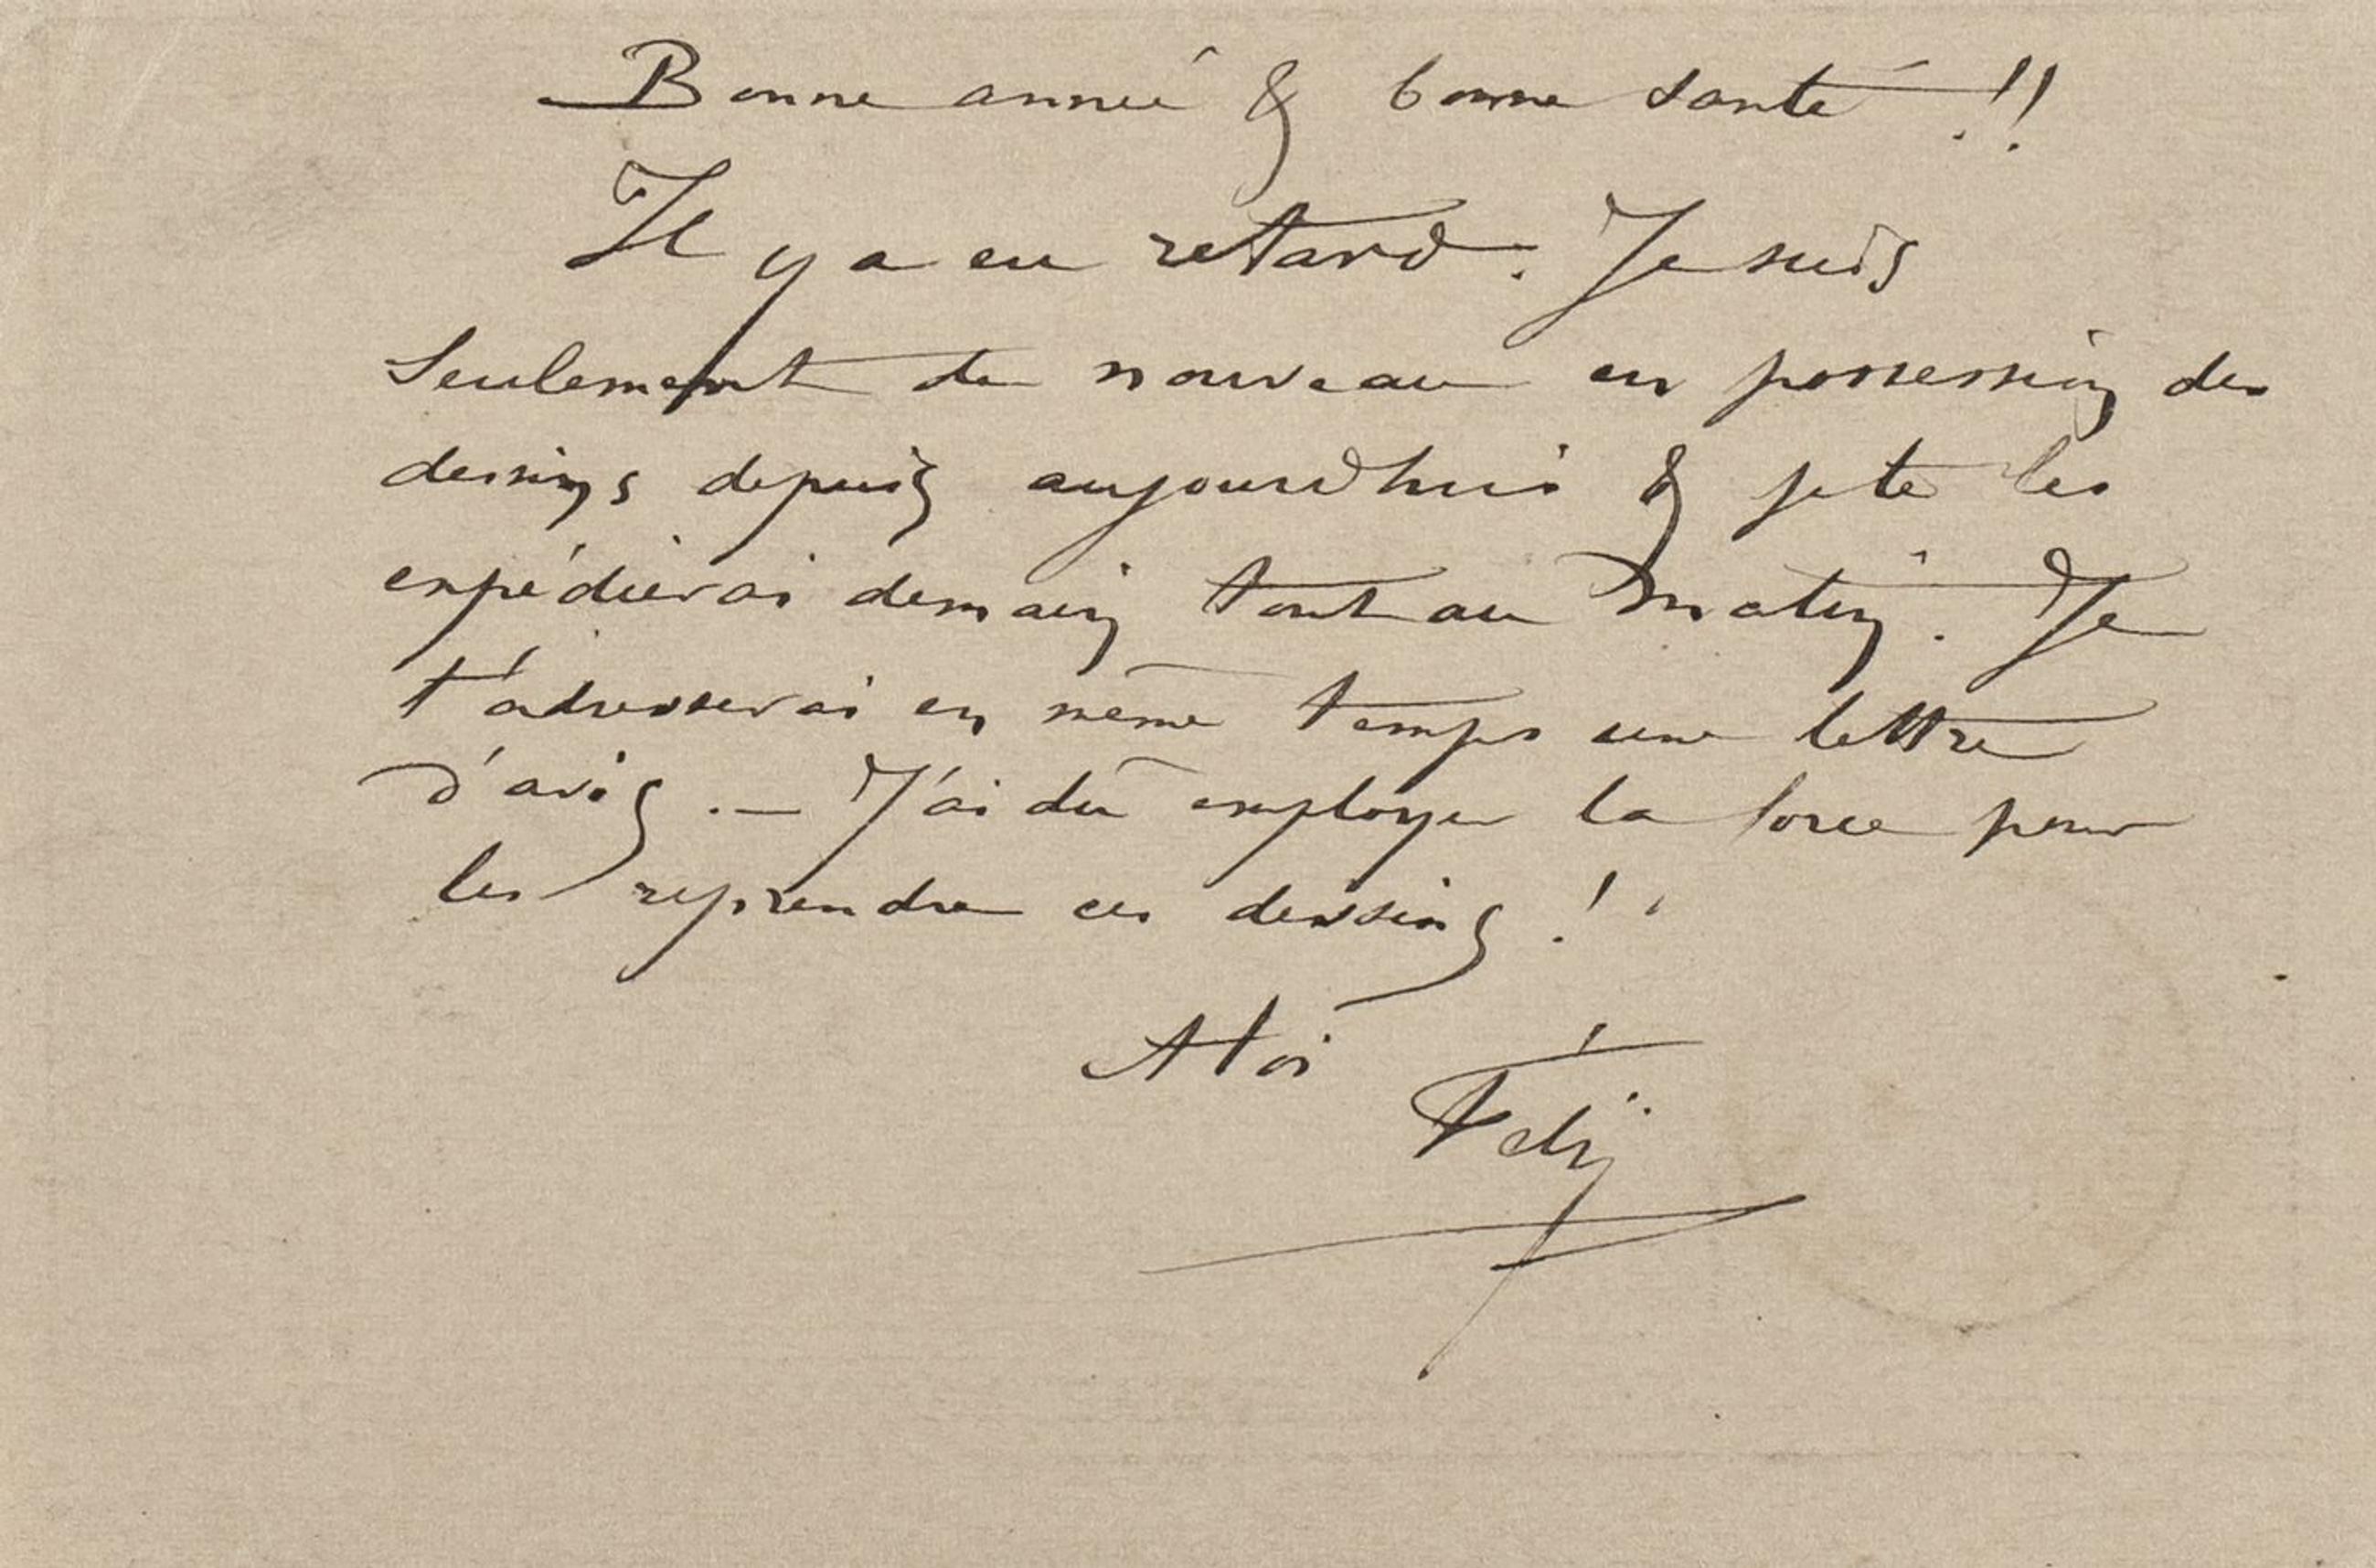 Bonne année & bonne santé !!
Il y a eu retard. Je suis
Seulement de nouveau en possession des
dessins depuis aujourdhui & je te les
expédierai demain tout au matin. Je
t'adresserai en même temps une lettre
d'avis. — J'ai dû employer la force pour
les reprendre ces dessins !
A toi
Fély